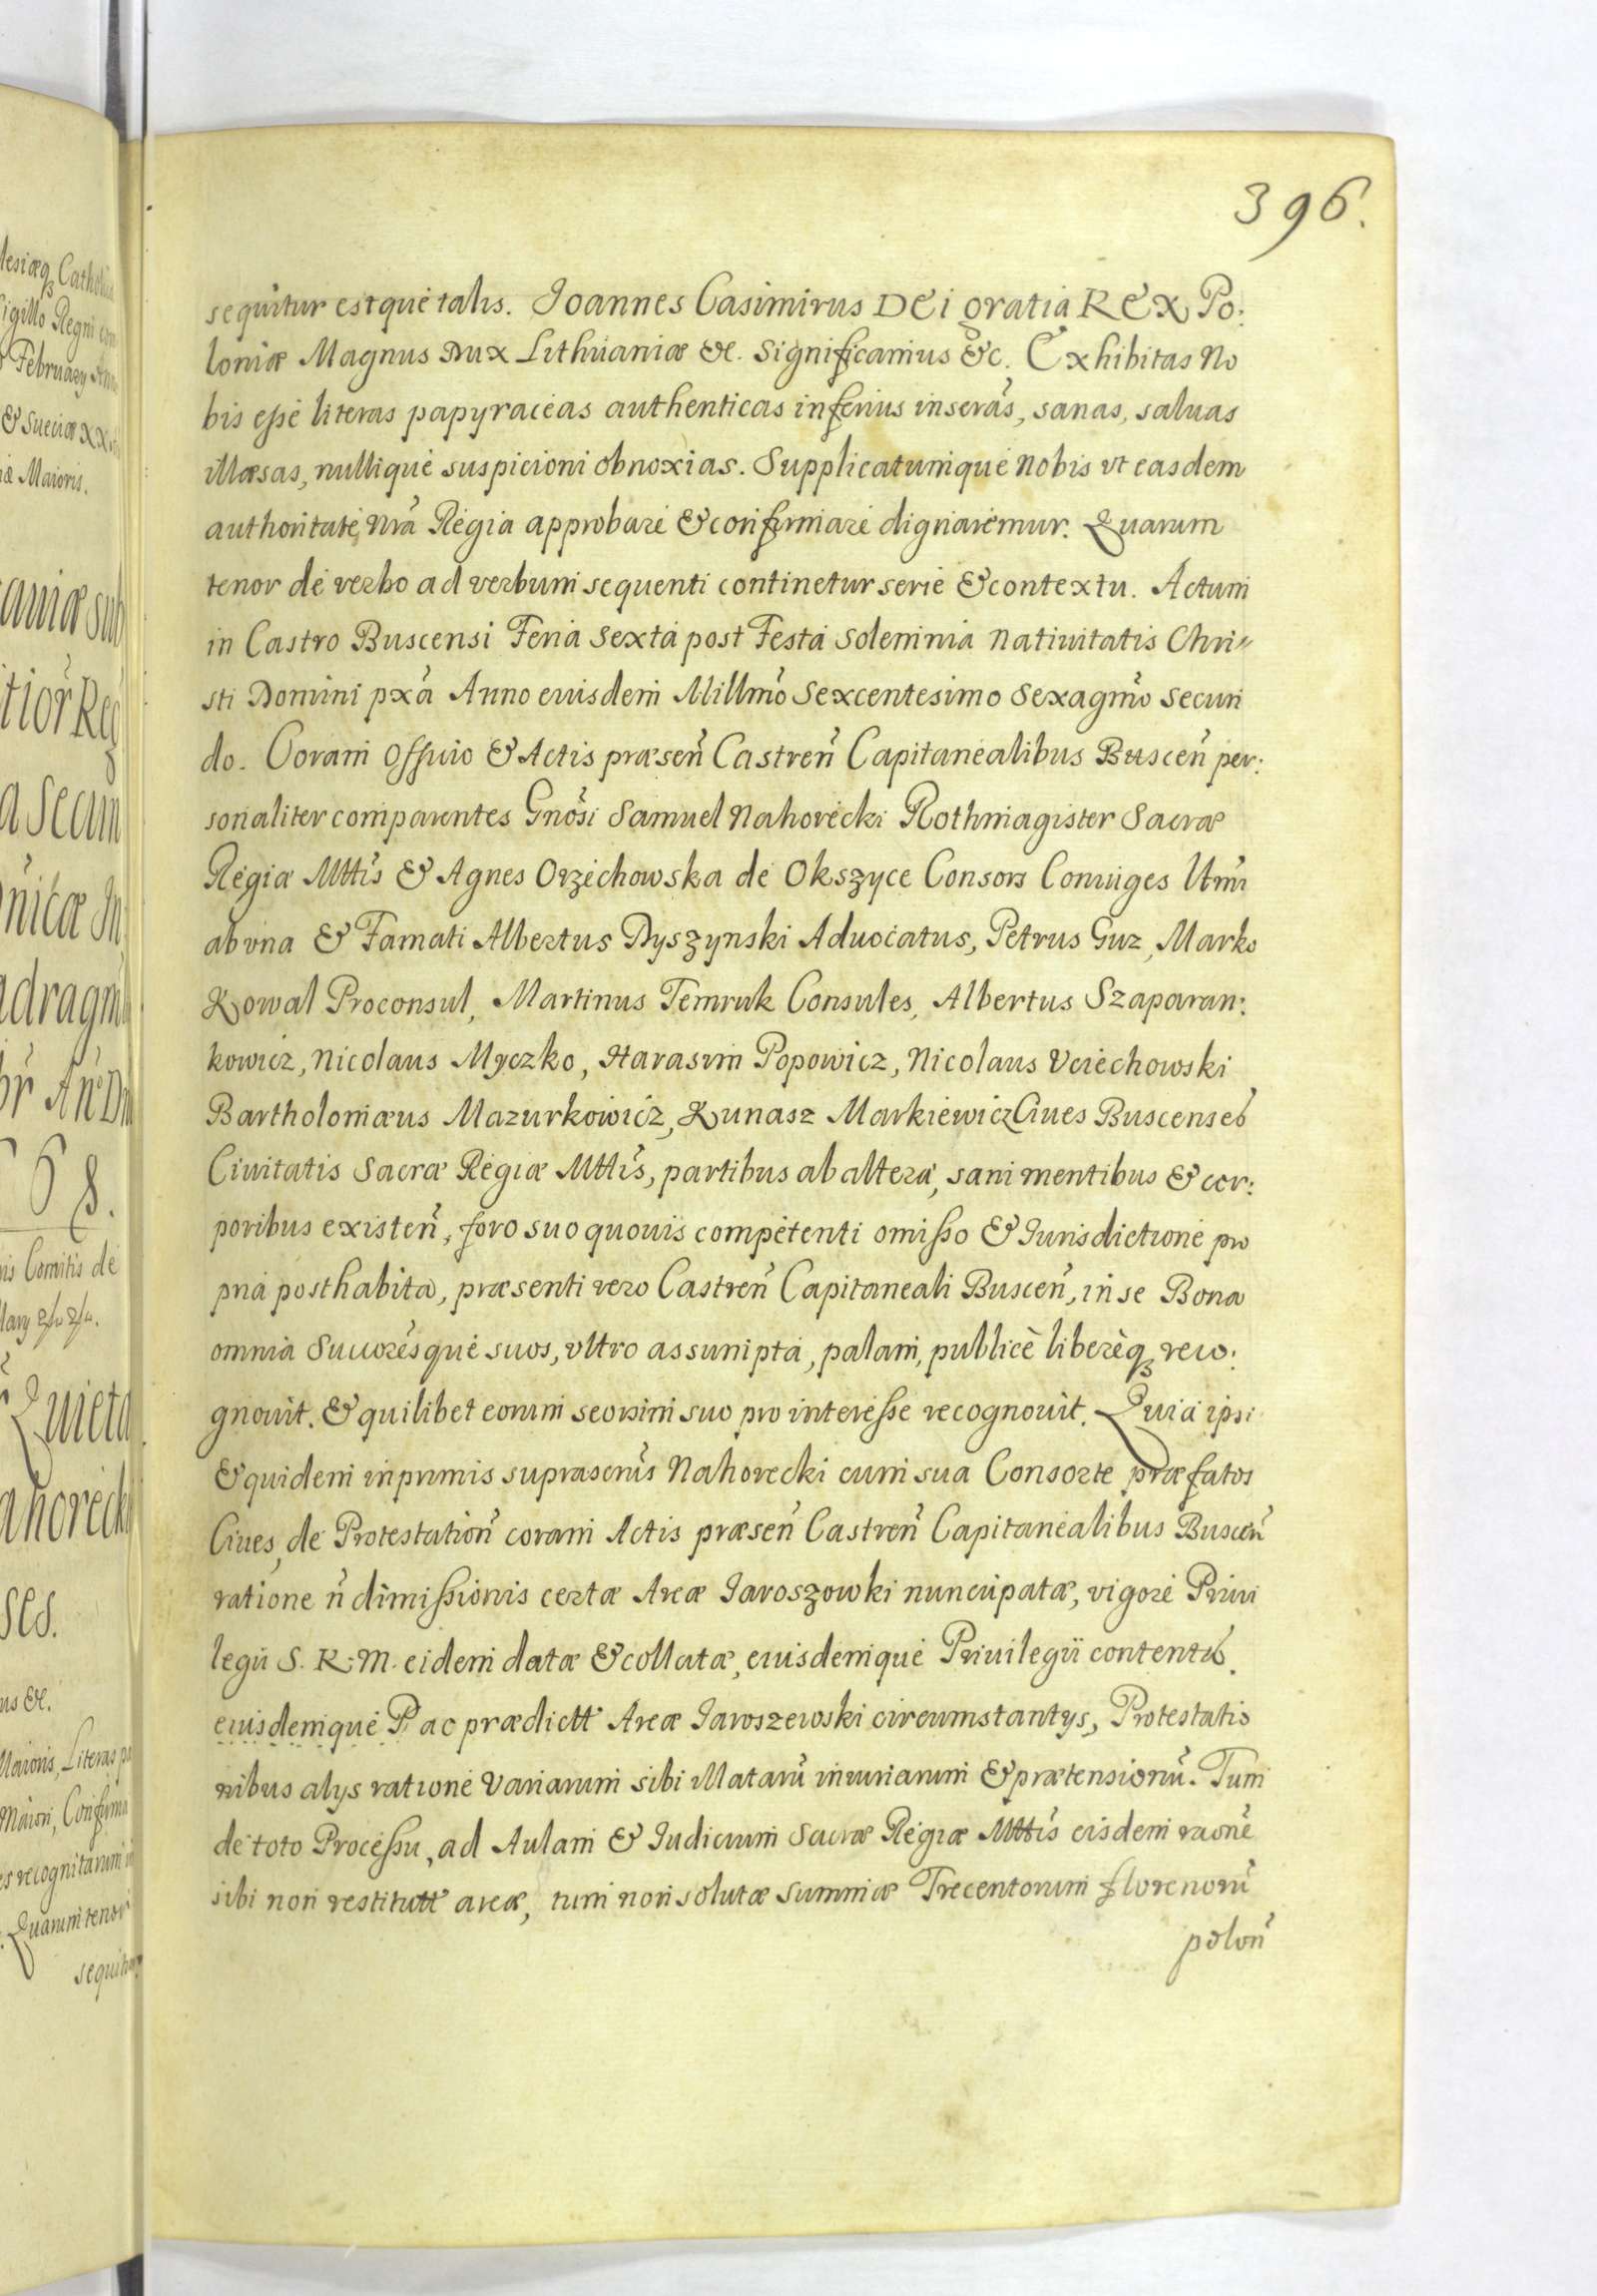 396.
sequitur estque talis. Joannes Casimirus DEi gratia REX Po:
loniæ Magnus Dux Lithuaniæ &c. Significamus &c. Exhibitas No
bis esse literas papyraceas authenticas inferius insertas, sanas, saluas
illæsas, nullique suspicioni obnoxias. Supplicatumque Nobis vt easdem
authoritate, Nrã Regia approbare & confirmare dignaremur. Quarum
tenor de verbo ad verbum sequenti continetur serie & contextu. Actum
in Castro Buscensi Feria Sexta post Festa Solemnia Natiuitatis Chri„
sti Domini pxã Anno eiusdem Millmõ Sexcentesimo Sexagmõ Secun
do. Coram Officio & Actis præsen̄ Castren̄ Capitanealibus Buscen̄ per:
sonaliter comparentes Gnõsi Samuel Nahorecki Rothmagister Sacræ
Regiæ Mttis & Agnes Orzechowska de Okszyce Consors Coniuges
ab vna & Famati Albertus Dyszynski Aduocatus, Petrus Guz, Marko
Kowal Proconsul, Martinus Temruk Consules, Albertus Szaparan:
kowicz, Nicolaus Myczko, Harasim Popowicz, Nicolaus Vciechowski
Bartholomæus Mazurkowicz, Kunasz Markiewicz Ciues Buscenses
Ciuitatis Sacræ Regiæ Mttis, partibus ab altera, sani mentibus & cor:
poribus existen̄, foro suo quouis competenti omisso & Jurisdictione pro
pria posthabita, præsenti vero Castren̄ Capitaneali Buscen̄, in se Bona
omnia Succoresque suos, vltro assumpta, palam, publicè liberèq, reco:
gnouit. & quilibet eorum seorsim suo pro interesse recognouit. Quia ipsi
& quidem inprimis suprascrus Nahorecki cum sua Consorte præfatos
Ciues, de Protestation̄ coram Actis præsen̄ Castren̄ Capitanealibus Buscen̄
ratione n̄ dimissionis certæ Areæ Jaroszowki nuncupatæ, vigore Priui
legii S. R. M. eidem datæ & collatæ, eiusdemque Priuilegii contentis.
eiusdemque P. ac prædictt Areæ Jaroszewski circumstantys, Protestatio
nibus alys ratione Variarum sibi illatarū iniuriarum & prætensionū. Tum
de toto Processu, ad Aulam & Judicium Sacræ Regiæ Mttis eisdem raõne
sibi non restitutt areæ, tum non solutæ Summæ Trecentorum florenorū
polon̄